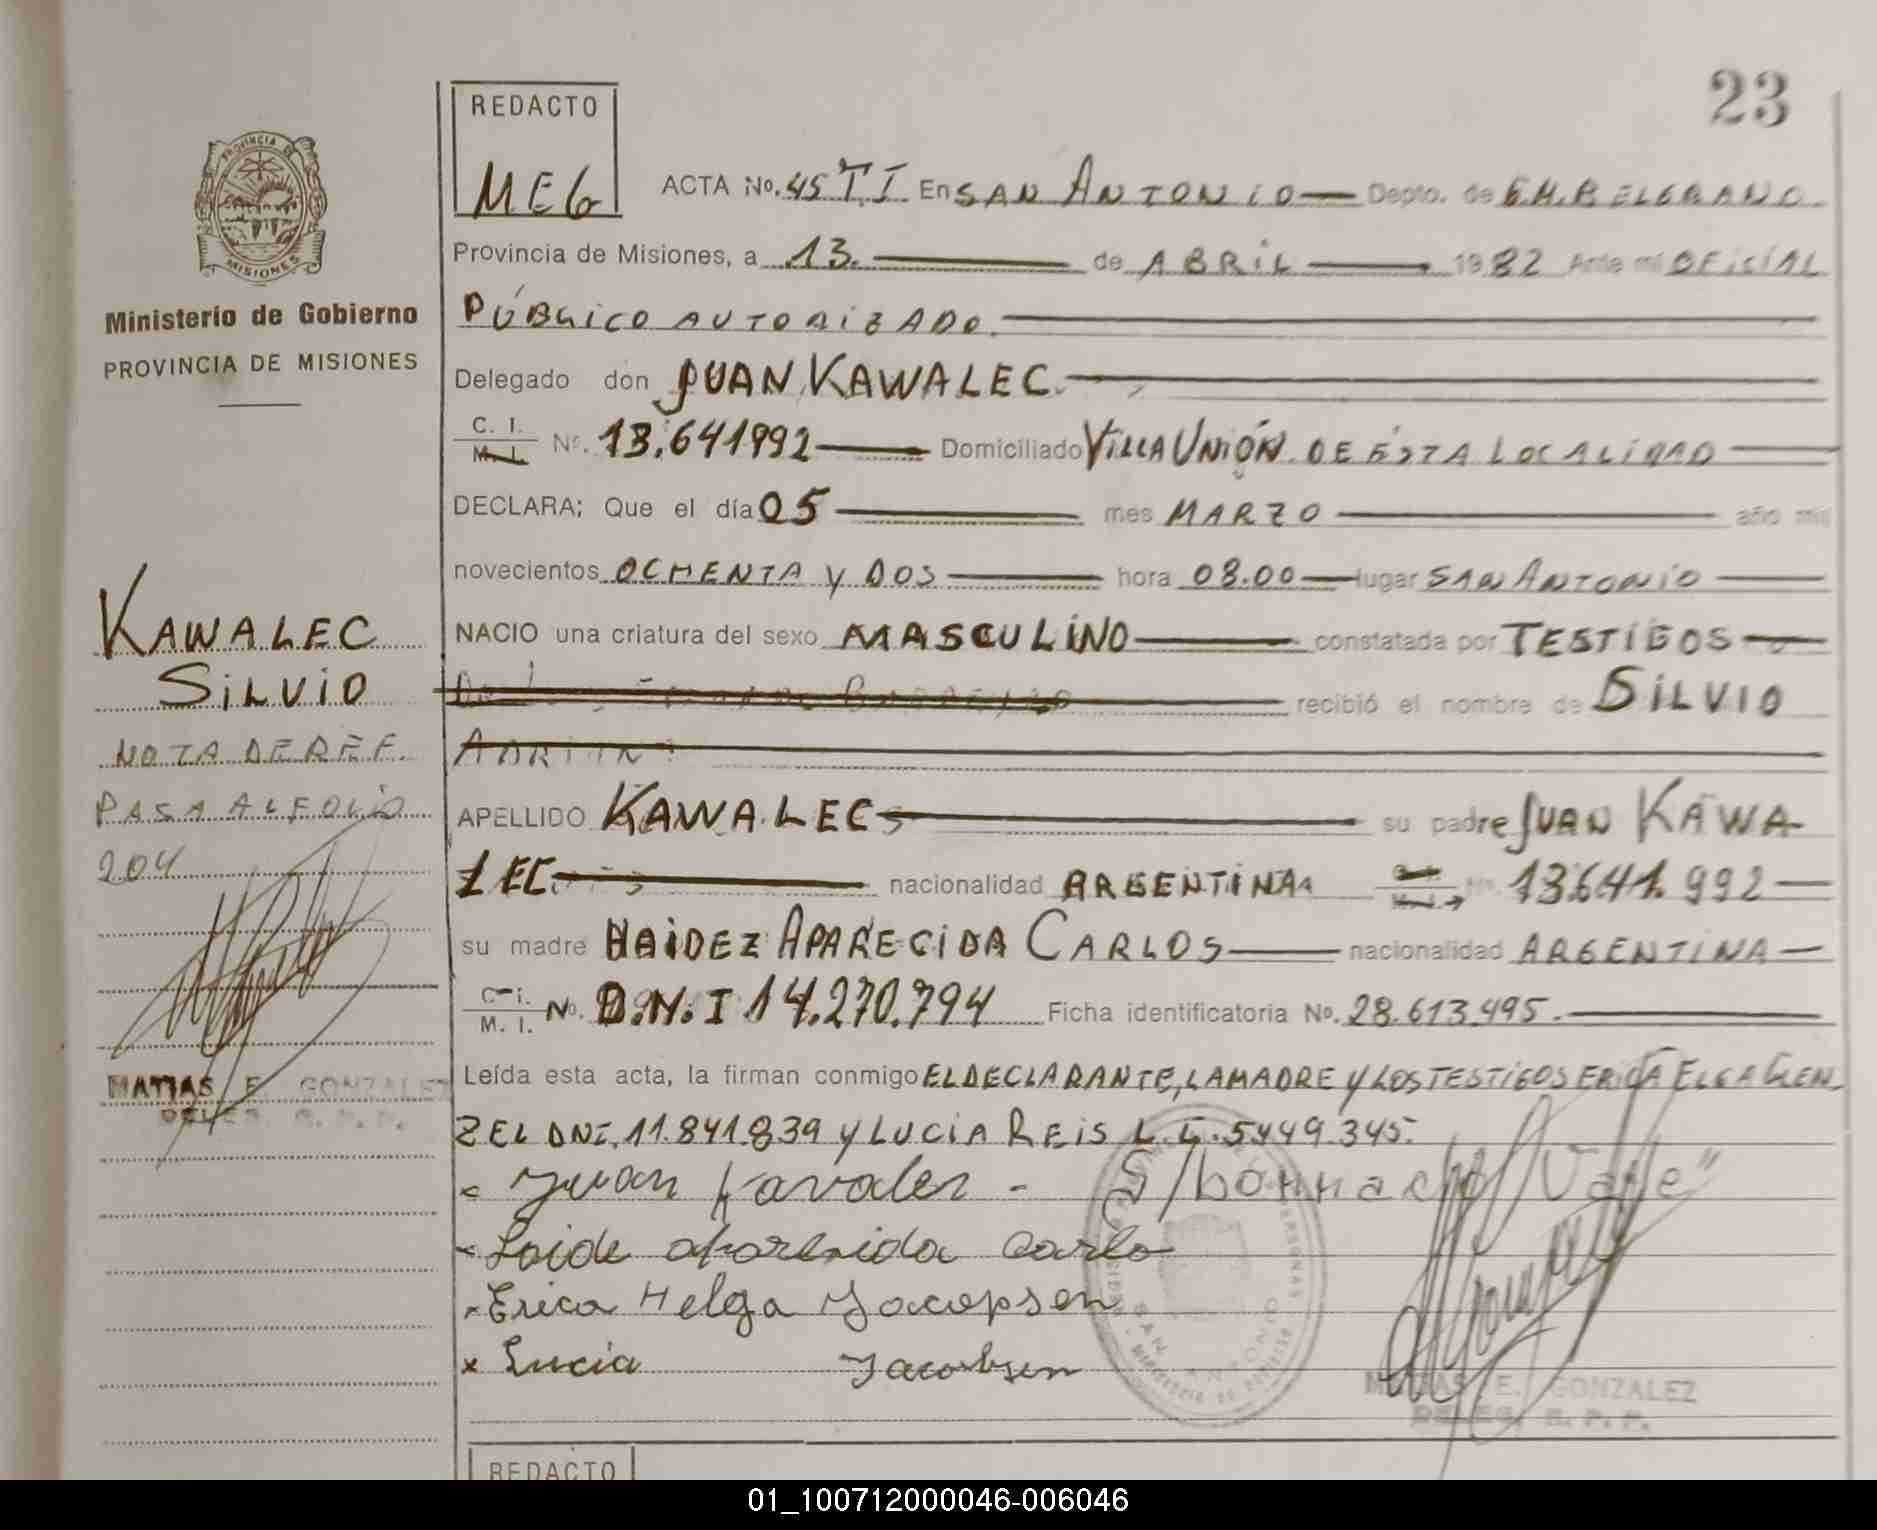 23
REDACTO
MEG
ACTA No. 45 T.I En SAN ANTONIO Depto. de G.M.BELGRANO
PROVINCIA DE
MISIONES
Provincia de Misiones, a 13. de ABRIL 1982 Ante mi OFICIAL
Ministerio de Gobierno
PROVINCIA DE MISIONES
PÚBLICO AUTORIZADO
Delegado don JUAN KAWALEC
C. I.
M. I. No. 13.641992 Domiciliado VILLA UNIÓN DE ÉSTA LOCALIDAD
DECLARA; Que el día 05 mes MARZO año mil
novecientos OCHENTA Y DOS hora 08.00 lugar SAN ANTONIO
NACIO una criatura del sexo MASCULINO constatada por TESTIGOS
recibió el nombre de SILVIO
ADRIAN
APELLIDO KAWALEC su padre JUAN KAWA
LEC nacionalidad ARGENTINA No. 13.641.992
su madre HAIDEZ APARECIDA CARLOS nacionalidad ARGENTINA
C. I.
M. I. No. D.N.I 14.270.794 Ficha identificatoria No. 28.613.495.
Leída esta acta, la firman conmigo EL DECLARANTE, LA MADRE Y LOS TESTIGOS ERICA ELGA GEN
ZEL DNI. 11.841.839 Y LUCIA REIS L.C. 5449.345.
KAWALEC
SILVIO
NOTA DE REF.
PASA AL FOLIO
204
MATIAS E. GONZALEZ
DELEG. R. P. P.
x Juan Kavalek - S/borrado "Vale"
x Loide aparesida Carlo
x Erica Helga Jacopsen
x Lucia Jacobsen
SAN ANTONIO
MATIAS E. GONZALEZ
DELEG. R. P. P.
REDACTO
01_100712000046-006046